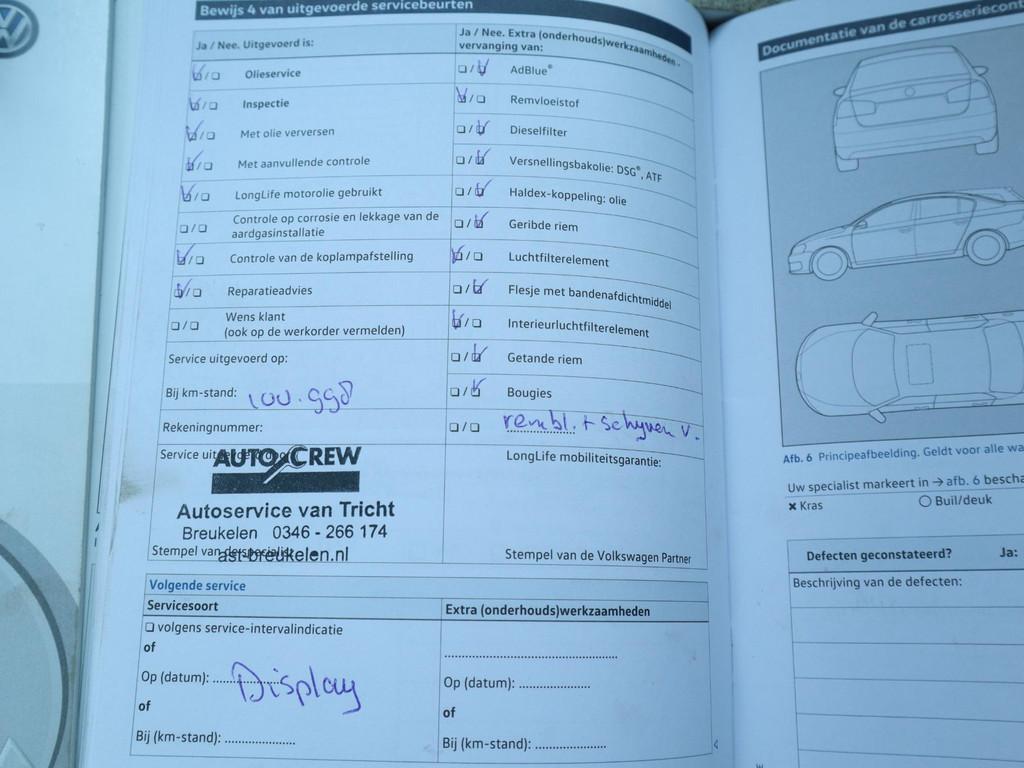 Bewijs 4 van uitgevoerde servicebeurten
Ja / Nee. Uitgevoerd is:
Olieservice
Inspectie
Met olie verversen
Met aanvullende controle
LongLife motorolie gebruikt
Controle op corrosie en lekkage van de
aardgasinstallatie
Controle van de koplampafstelling
Reparatieadvies
Wens klant
(ook op de werkorder vermelden)
Service uitgevoerd op:
Bij km-stand: 100.998
Rekeningnummer:
Service uitgevoerd door:
AUTO CREW
Autoservice van Tricht
Breukelen 0346 - 266 174
ast-breukelen.nl
Stempel van de specialist
Ja / Nee. Extra (onderhouds)werkzaamheden -
vervanging van:
AdBlue®
Remvloeistof
Dieselfilter
Versnellingsbakolie: DSG®, ATF
Haldex-koppeling: olie
Geribde riem
Luchtfilterelement
Flesje met bandenafdichtmiddel
Interieurluchtfilterelement
Getande riem
Bougies
rembl. + schijven v.
LongLife mobiliteitsgarantie:
Stempel van de Volkswagen Partner
Volgende service
Servicesoort
volgens service-intervalindicatie
of
Op (datum): Display
of
Bij (km-stand):
Extra (onderhouds)werkzaamheden
Op (datum):
of
Bij (km-stand):
Documentatie van de carrosseriecont
Afb. 6 Principeafbeelding. Geldt voor alle wa
Uw specialist markeert in → afb. 6 bescha
× Kras
Buil/deuk
Defecten geconstateerd? Ja:
Beschrijving van de defecten: